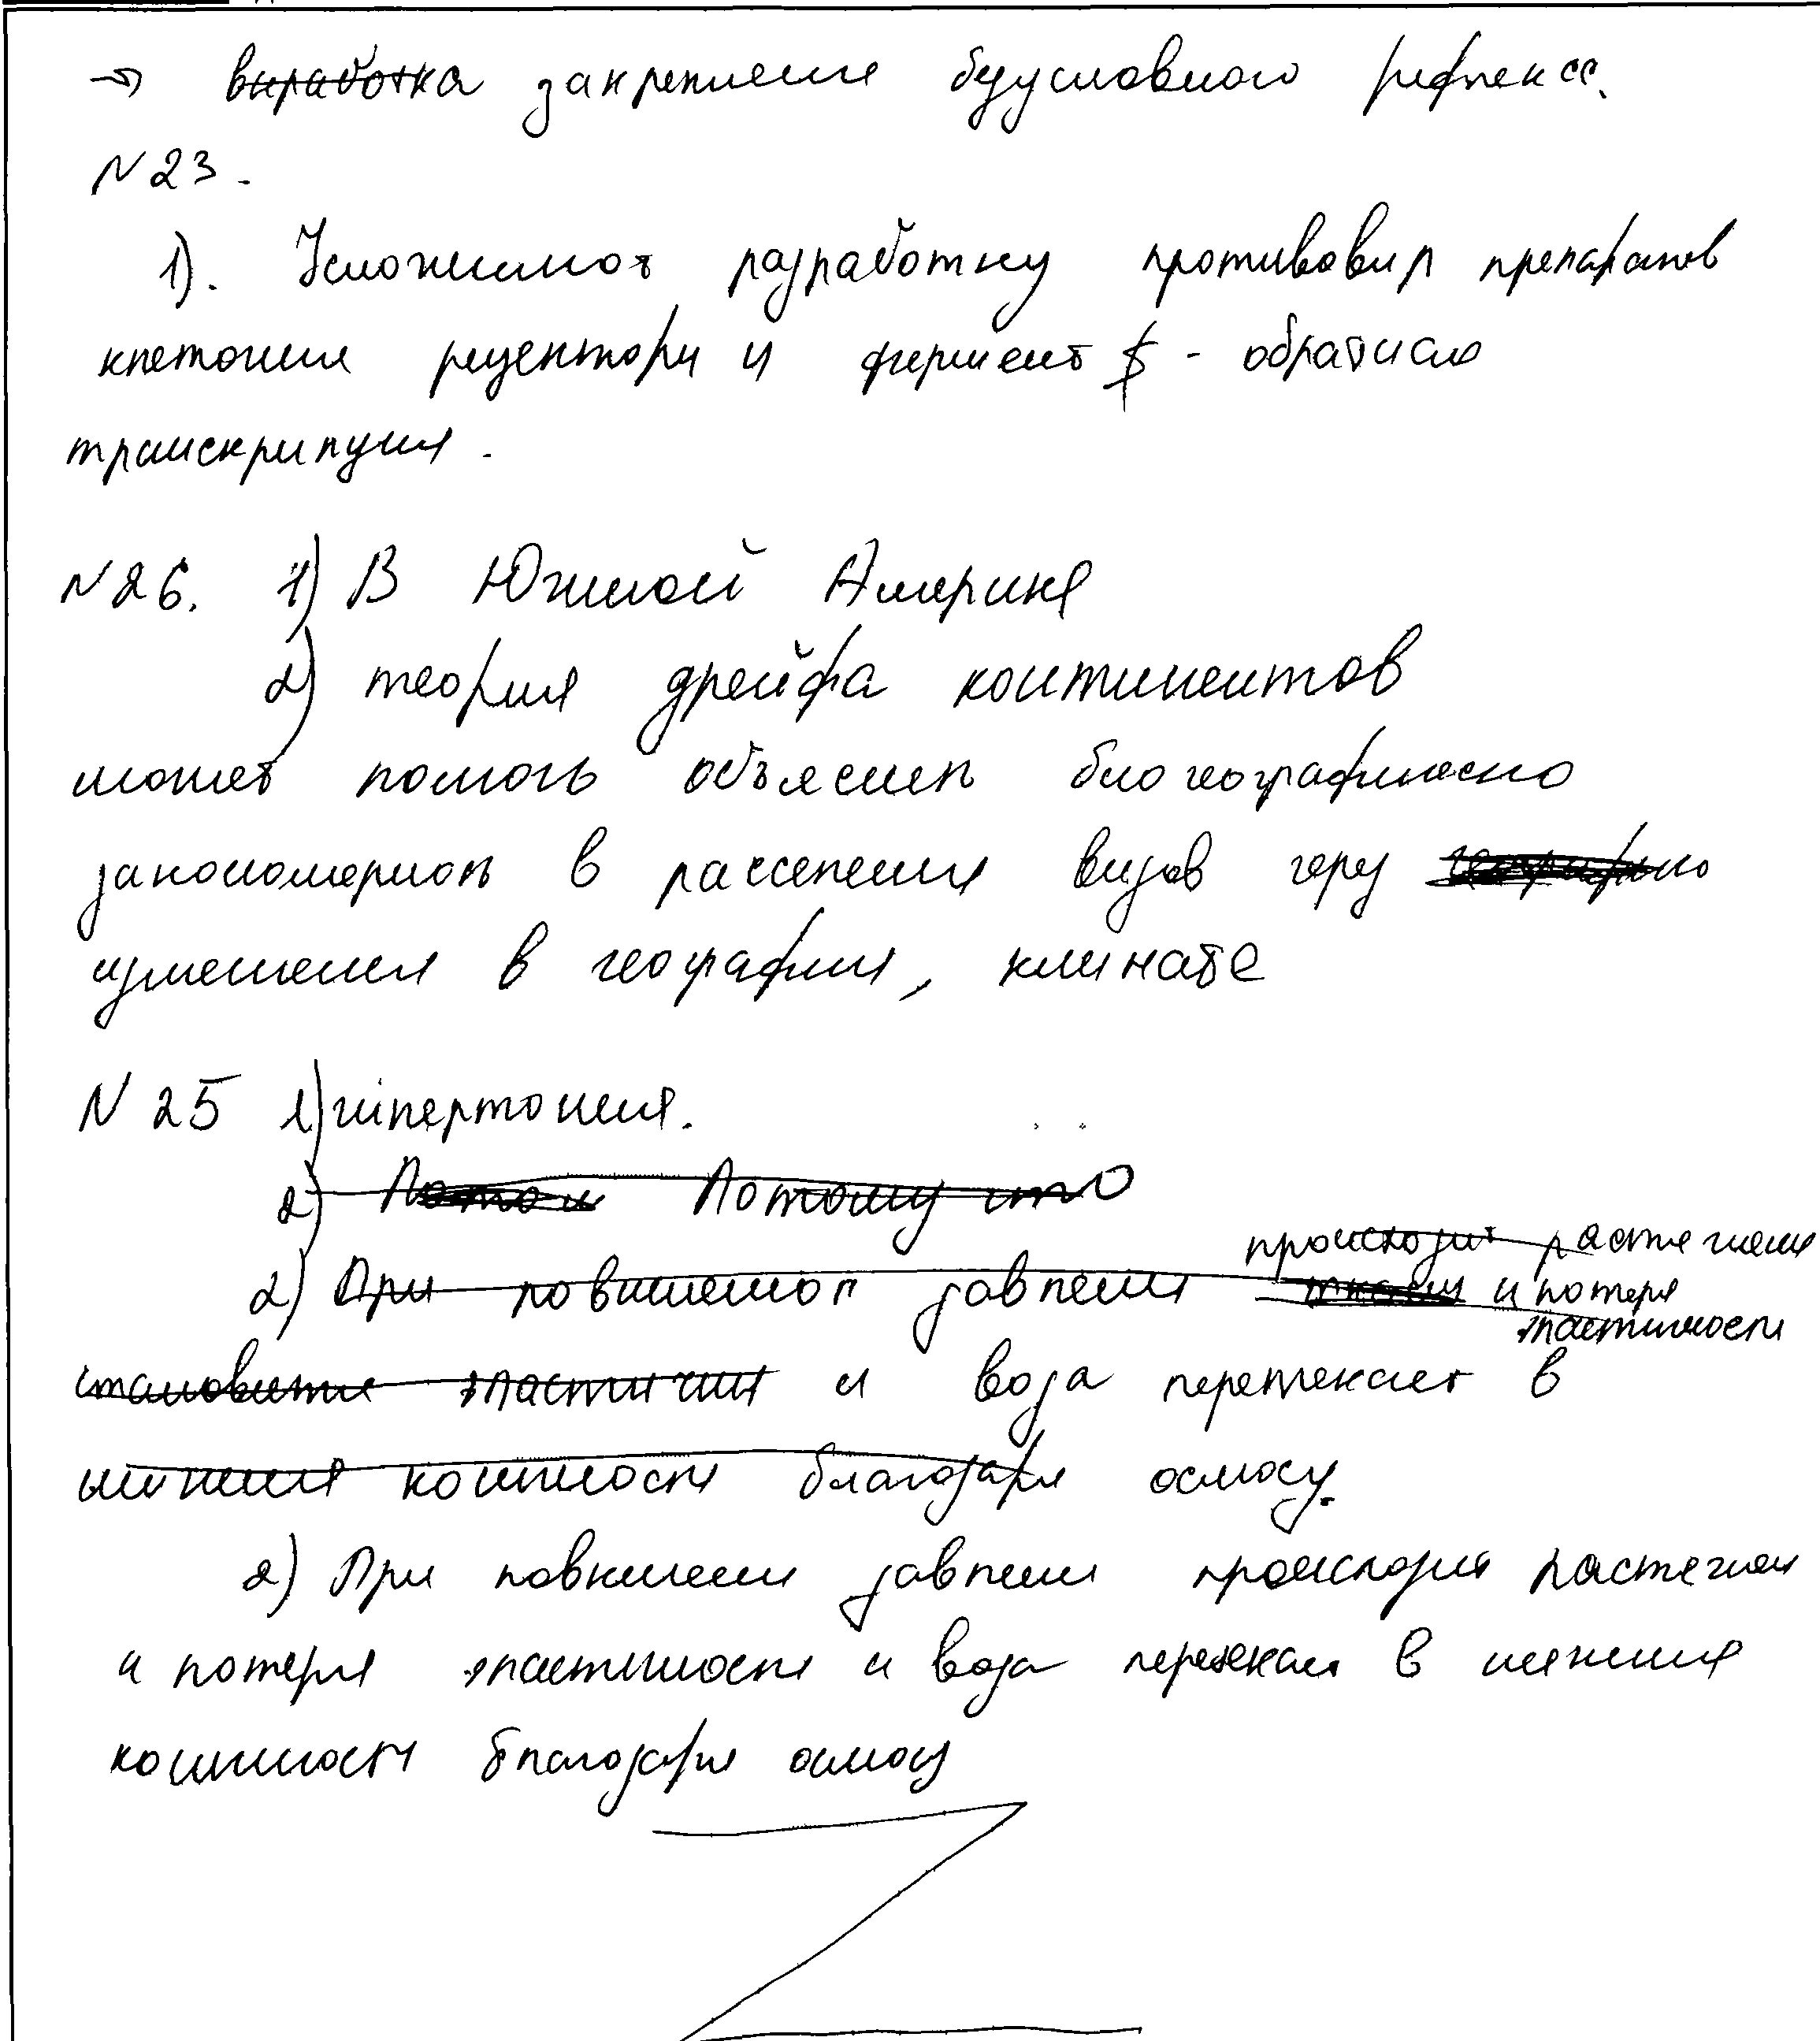 → выработка закрепление безусловного рефлекса.
N 23.
1). Усложняют разработку противовир препаратов
клеточные рецепторы и фермент - обратная
транскрипция.
N 26. 1) В Южной Америке
2) теория дрейфа континентов
может помочь объяснить биогеографическо
закономерность в расселение видов через
изменения в географии, климате
N 25 1) гипертония.
2) Потом Потому что
происходит растяжение
2) При повышенной давлении ткани и потеря
эластичности
становится эластичны и вода перетекает в
нижние конечности благодаря осмосу.
2) При повышении давлении происходит растяжен
и потеря эластичности и вода перетекает в нижние
конечности благодаря осмосу